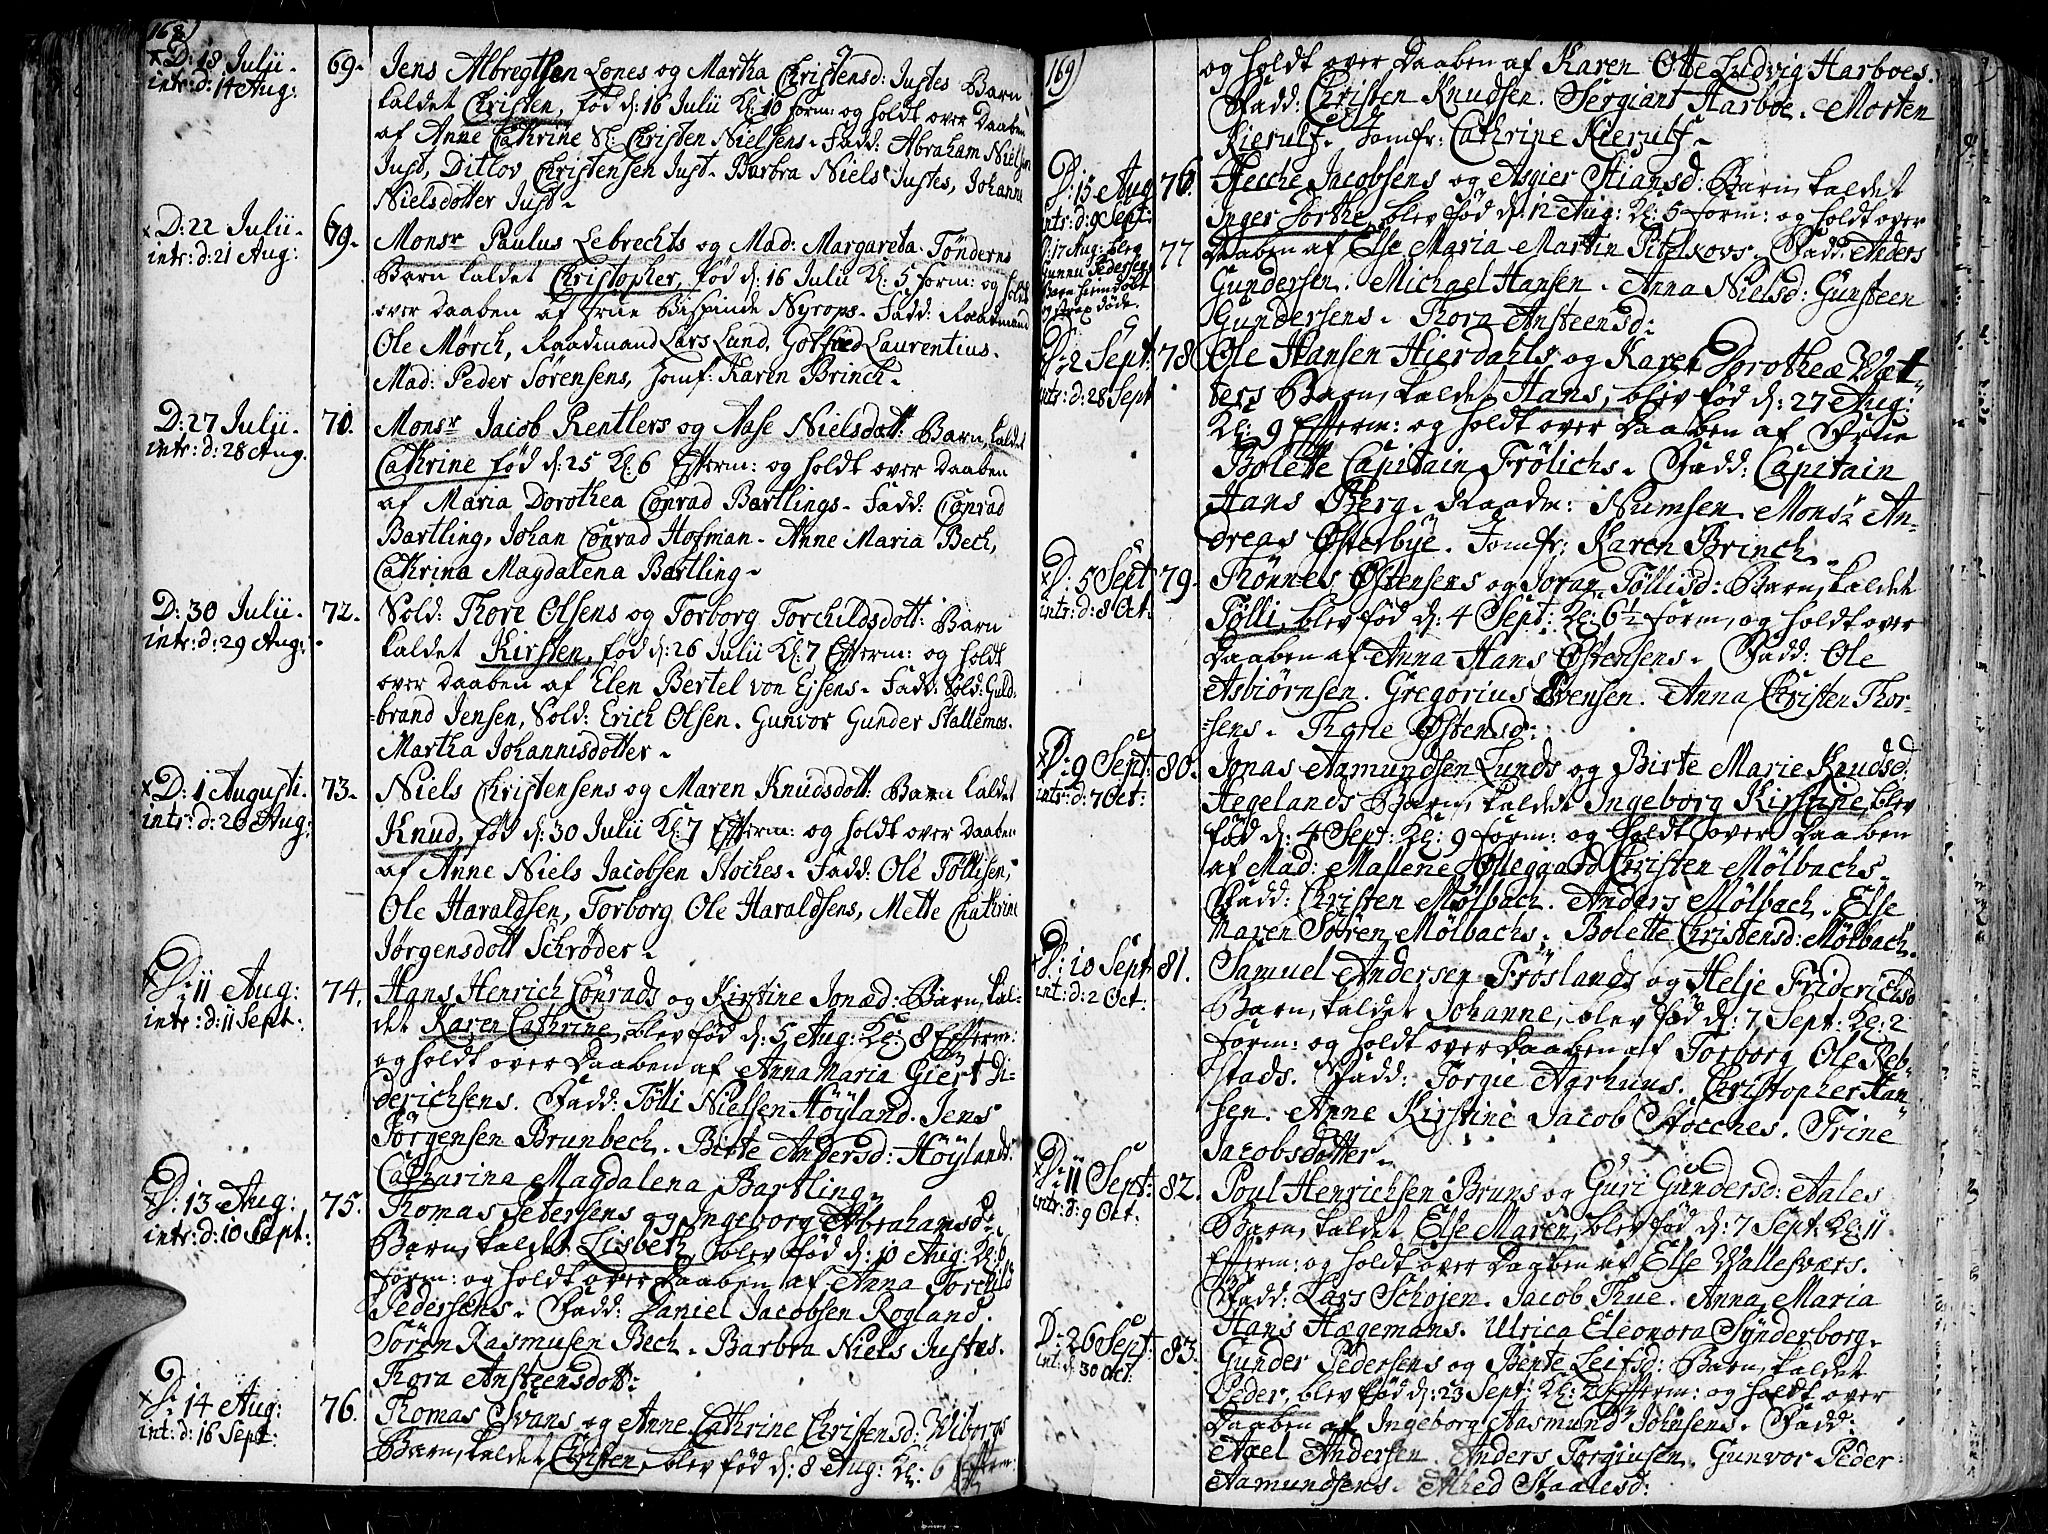 168)
×D: 18 Julii -
intr: d: 14 Aug:
69-
Jens Albregtsen Lones og Martha Christensd: Justes Barn
kaldet Christen, fød d: 16 Julii Kl: 10 form: og holdt over Daaben
af Anne Cathrine Sl: Christen Nielsens - Fadd: Abraham Nielsen
Just, Ditlov Christensen Just - Barbra Niels Justes, Johanne
Nielsdotter Just -
×D: 22 Julii -
intr: d: 21 Aug:
69-
Monsr Paulus Lebrechts og Mad: Margareta Tønders
Barn kaldet Christopher, fød d: 16 Julii Kl: 5 form: og holdt
over Daaben af Frue Bispinde Nyrops - Fadd: Raadmand
Ole Mørch, Raadmand Lars Lund, Gotfried Laurentius.
Mad: Peder Sørensens, Jomf: Karen Brinch -
D: 27 Julii -
intr: d: 28 Aug.
70.
Monsr Jacob Rentlers og Aase Nielsdott: Barn kaldet
Cathrine fød d: 25 Kl: 6 Efterm: og holdt over Daaben
af Maria Dorothea Conrad Bartlings - Fadd: Conrad
Bartling, Johan Conrad Hofman - Anne Maria Bech,
Cathrina Magdalena Bartling -
D: 30 Julii -
intr: d: 29 Aug:
72.
Sold: Thore Olsens og Torborg Torchildsdott: Barn
kaldet Kirsten, fød d: 26 Julii Kl: 7 Efterm: og holdt
over Daaben af Elen Bertel von Ejsens - Fadd: Sold: Guld-
brand Jensen, Sold: Erich Olsen. Gunvor Gunder Stallemos.
Martha Johannisdotter -
×D: 1 Augusti.
intr: d: 26 Aug:
73-
Niels Christensens og Maren Knudsdott: Barn kaldet
Knud, fød d: 30 Julii Kl: 7 Efterm: og holdt over Daaben
af Anne Niels Jacobsen Stoches - Fadd: Ole Tøllisen,
Ole Haraldsen, Torborg Ole Haraldsens, Mette Cathrine
Jørgensdott Schrøder -
×D: 11 Aug:
intr: d: 11 Sept:
74.
Hans Henrich Conrads og Kirstine Jonæd: Barn, kal-
det Karen Cathrine, blev fød d: 5 Aug: Kl: 8 Efterm:
og holdt over Daaben af Anna Maria Giert Di-
derichsens. Fadd: Tølli Nielsen Høyland. Jens
Jørgensen Brunbech. Birte Andersd: Høylands.
Catharina Magdalena Bartling -
×D: 13 Aug:
intr: d: 10 Sept:
75.
Thomas Pedersens og Ingeborg Abrahamsd:
Barn, kaldet Lisbeth, blev fød d: 10 Aug: Kl: 6
form: og holdt over Daaben af Anna Torchild
Pedersens. Fadd: Daniel Jacobsen Rogland.
Søren Rasmusen Bech. Barbra Niels Justes.
Thora Ansteensdott:
×D: 14 Aug:
int: d: 16 Sept:
76.
Thomas Evans og Anne Cathrine Christensd: Wiborgs
Barn, kaldet Christen, blev fød d: 8 Aug: Kl: 6 Efterm:
169)
og holdt over Daaben af Karen Otte Ludvig Harboes.
Fadd: Christen Knudsen. Sergiant Harboe. Morten
Kierulf. Jomfr: Cathrine Kierulf -
D: 15 Aug
intr: d: 9 Sept:
76.
Hecche Jacobsens og Asgier Stiansd: Barn, kaldet
Inger Dorthe, blev fød d: 12 Aug: Kl: 5 form: og holdt over
D: 17 Aug: blev
Gunnu Pedersens
Barn hiemdøbt
og strax døde.
77
Daaben af Else Maria Martin Stelkovs. Fadd: Anders
Gundersen. Michael Hansen. Anna Nielsd: Gunsteen
Gundersens. Thora Ansteensd:
D: 2 Sept:
intr: d: 28 Sept
78
Ole Hansen Hierdahls og Karen Dorotheæ Wet-
ters Barn, kaldet Hans, blev fød d: 27 Aug:
Kl: 9 Efterm: og holdt over Daaben af Frue
Bolette Capitain Frølichs. Fadd: Capitain
Hans Berg. Raadm: Numsen. Monsr An-
dreas Østerbye. Jomfr: Karen Brinch.
×D: 5 Sept
intr: d: 8 Oct:
79.
Thønnes Østensens og Joran Tøllisd: Barn, kaldet
Tølli, blev fød d: 4 Sept: Kl: 6½ form, og holdt over
Daaben af Anna Hans Østensens. Fadd: Ole
Asbiørnsen. Gregorius Evensen. Anna Christen Thor-
sens. Thore Østensd:
×D: 9 Sept:
intr: d: 7 Oct:
80.
Jonas Aamundsen Lunds og Birte Marie Knudsd:
Hegelands Barn, kaldet Ingeborg Kirstine, blev
fød d: 4 Sept: Kl: 9 form: og holdt over Daaben
af Mad: Mallene Olleggard Christen Mølbachs.
Fadd: Christen Mølbach. Anders Mølbach. Else
Maren Søren Mølbachs. Bolette Christensd: Mølbach.
×D: 10 Sept
int: d: 2 Oct:
81.
Samuel Andersen Frøslands og Helje Friderichsd
Barn, kaldet Johanne, blev fød d: 7 Sept: Kl: 2
form: og holdt over Daaben af Torborg Ole Reb-
stads. Fadd: Torgie Aarhuus. Christopher Han-
sen. Anne Kirstine Jacob Stocches. Trine
Jacobsdotter -
×D: 11 Sept:
intr: d: 9 Oct:
82.
Poul Henrichsen Bruns og Guri Gundersd: Aales
Barn, kaldet Else Maren, blev fød d: 7 Sept: Kl: 11
Efterm: og holdt over Daaben af Else Wallesværs.
Fadd: Lars Schojen. Jacob Thue. Anna Maria
Hans Hagemans. Ulrica Eleonora Synderborg.
D: 26 Sept:
int: d: 30 Oct:
83.
Gunder Pedersens og Bente Leifsd: Barn, kaldet
Peder, blev fød d: 23 Sept: Kl: 2 Efterm: og holdt over
Daaben af Ingeborg Aasmund Johnsens. Fadd:
Axel Andersen. Anders Torgiusen. Gunvor Peder
Aamundsens. Athed Staalesd: